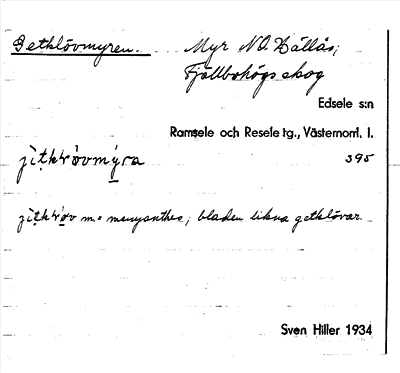 Getklövmyren.
Myr NO Hällås,
Fjällbohögs skog
Edsele s:n
Ramsele och Resele tg., Västernorrl. l.
395
jìtkḷövmýra
jìtkḷöv m = menyanthes; bladen likna getklövar.
Sven Hiller 1934